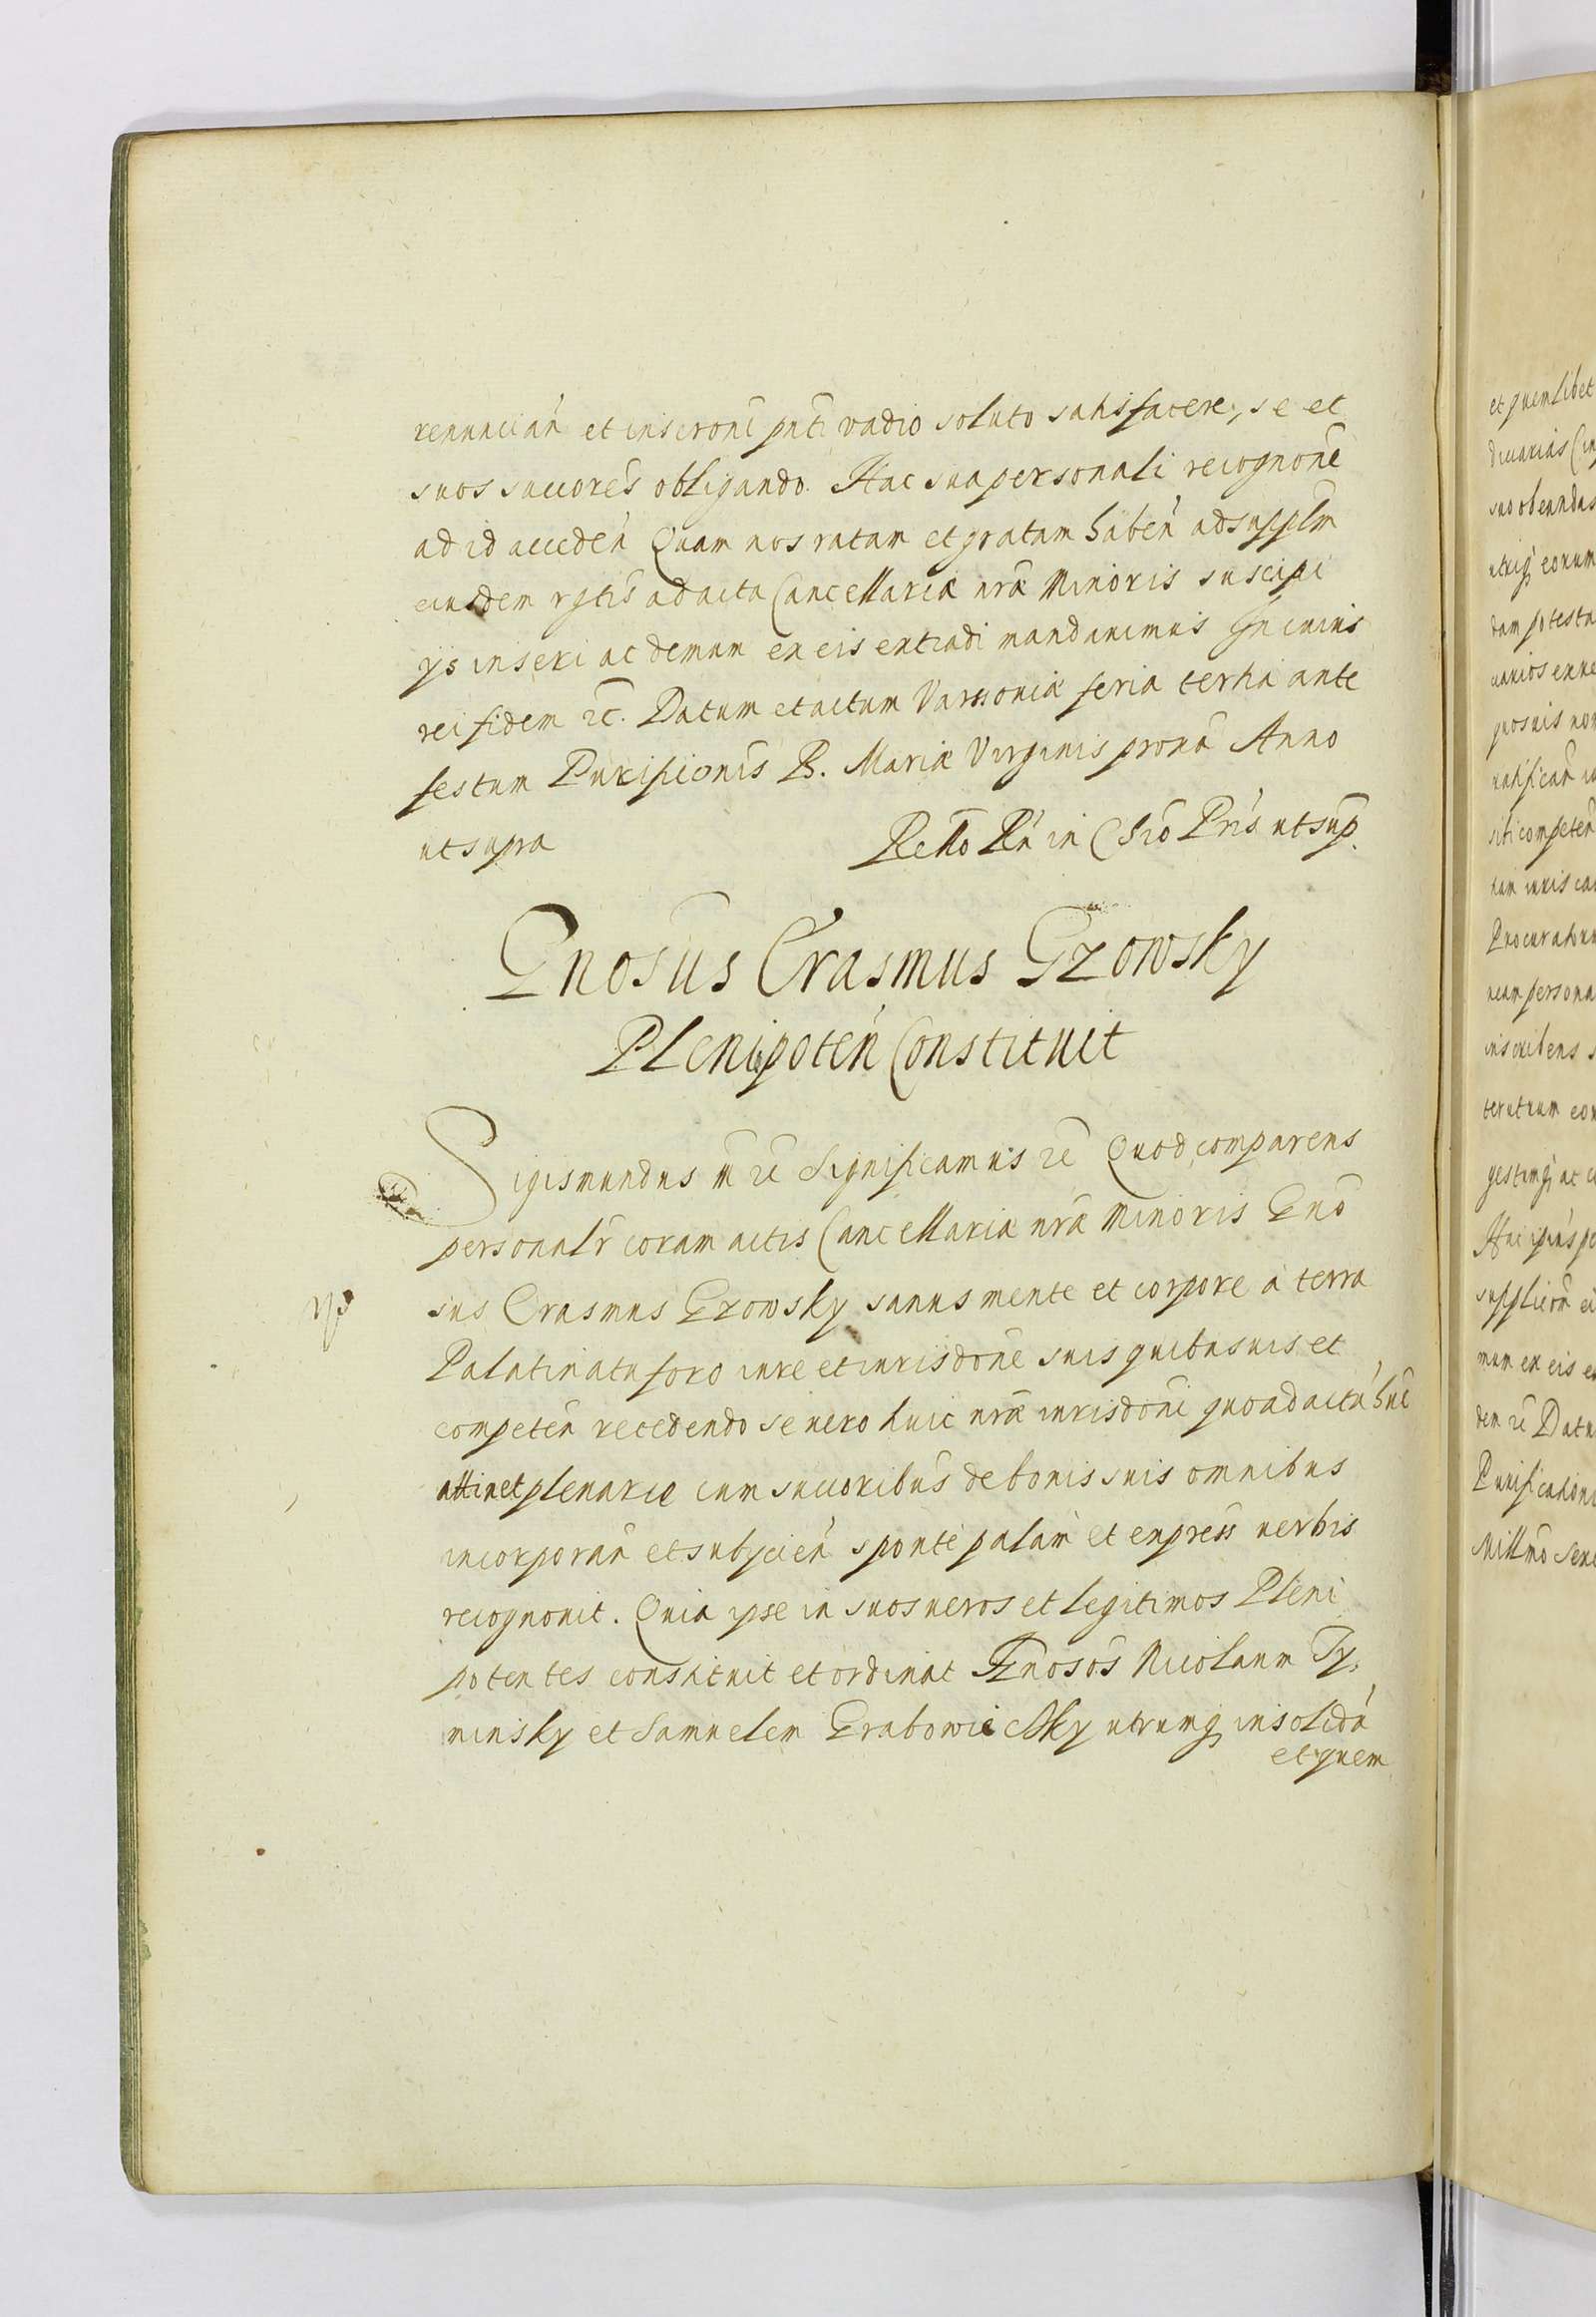 renunciań et inscronī pn̄ti vadio soluto satisfacere, se et
suos succores̄ obligando. Hac sua personali recognonē
ad id accedeń Quam nos ratam et gratam habeń ad suppl̄m
eiusdem rgtis̄ ad acta Cancellariæ nrǣ Minoris suscipi
ijs inseri ac demum ex eis extradi mandauimus In cuius
rei fidem ꝛc̄. Datum et actum Varsouiæ feria tertia ante
festum Purificionis̄ B. Mariæ Virginis proxā Anno
ut supra
Rello Rń in Csio Pris ut sup̄.
Gnosus̄ Erasmus Gzowsky
Plenipoteń Constituit
Sigismundus m̄ ꝛc̄ Significamus ꝛc̄ Quod comparens
personalr̄ coram actis Cancellariæ nrǣ Minoris Gnō
sus Erasmus Gzowsky sanus mente et corpore à terra
Palatinatu foro iure et iurisdonē suis quibusuis et
competeń recedendo se uero huic nrǣ iurisdonī quoad actú hūc
attinet plenarie cum succoribus̄ de bonis suis omnibus
incorporań et subijcień sponte palam et express̄ uerbis
recognouit. Quia ipse in suos ueros et legitimos Pleni
potentes constituit et ordinat Gnosos̄ Nicolaum Ty,
minsky et Samuelem Grabowieċky utrumq insolidú
et quem
et quemlibet
diuarias (in
suo obeundas
utriq eorum
dam potesta
uarios
quosuis non
ratificań
sibi competeń
dam iuris ca
Procuratorum
neam persona
inscribens s
terutrum eor
gestumq ac
Hac ipius pe
supplicōm ei
mum ex eis ex
dem ꝛc̄ Datu
Purificationi
Millmo Sexc